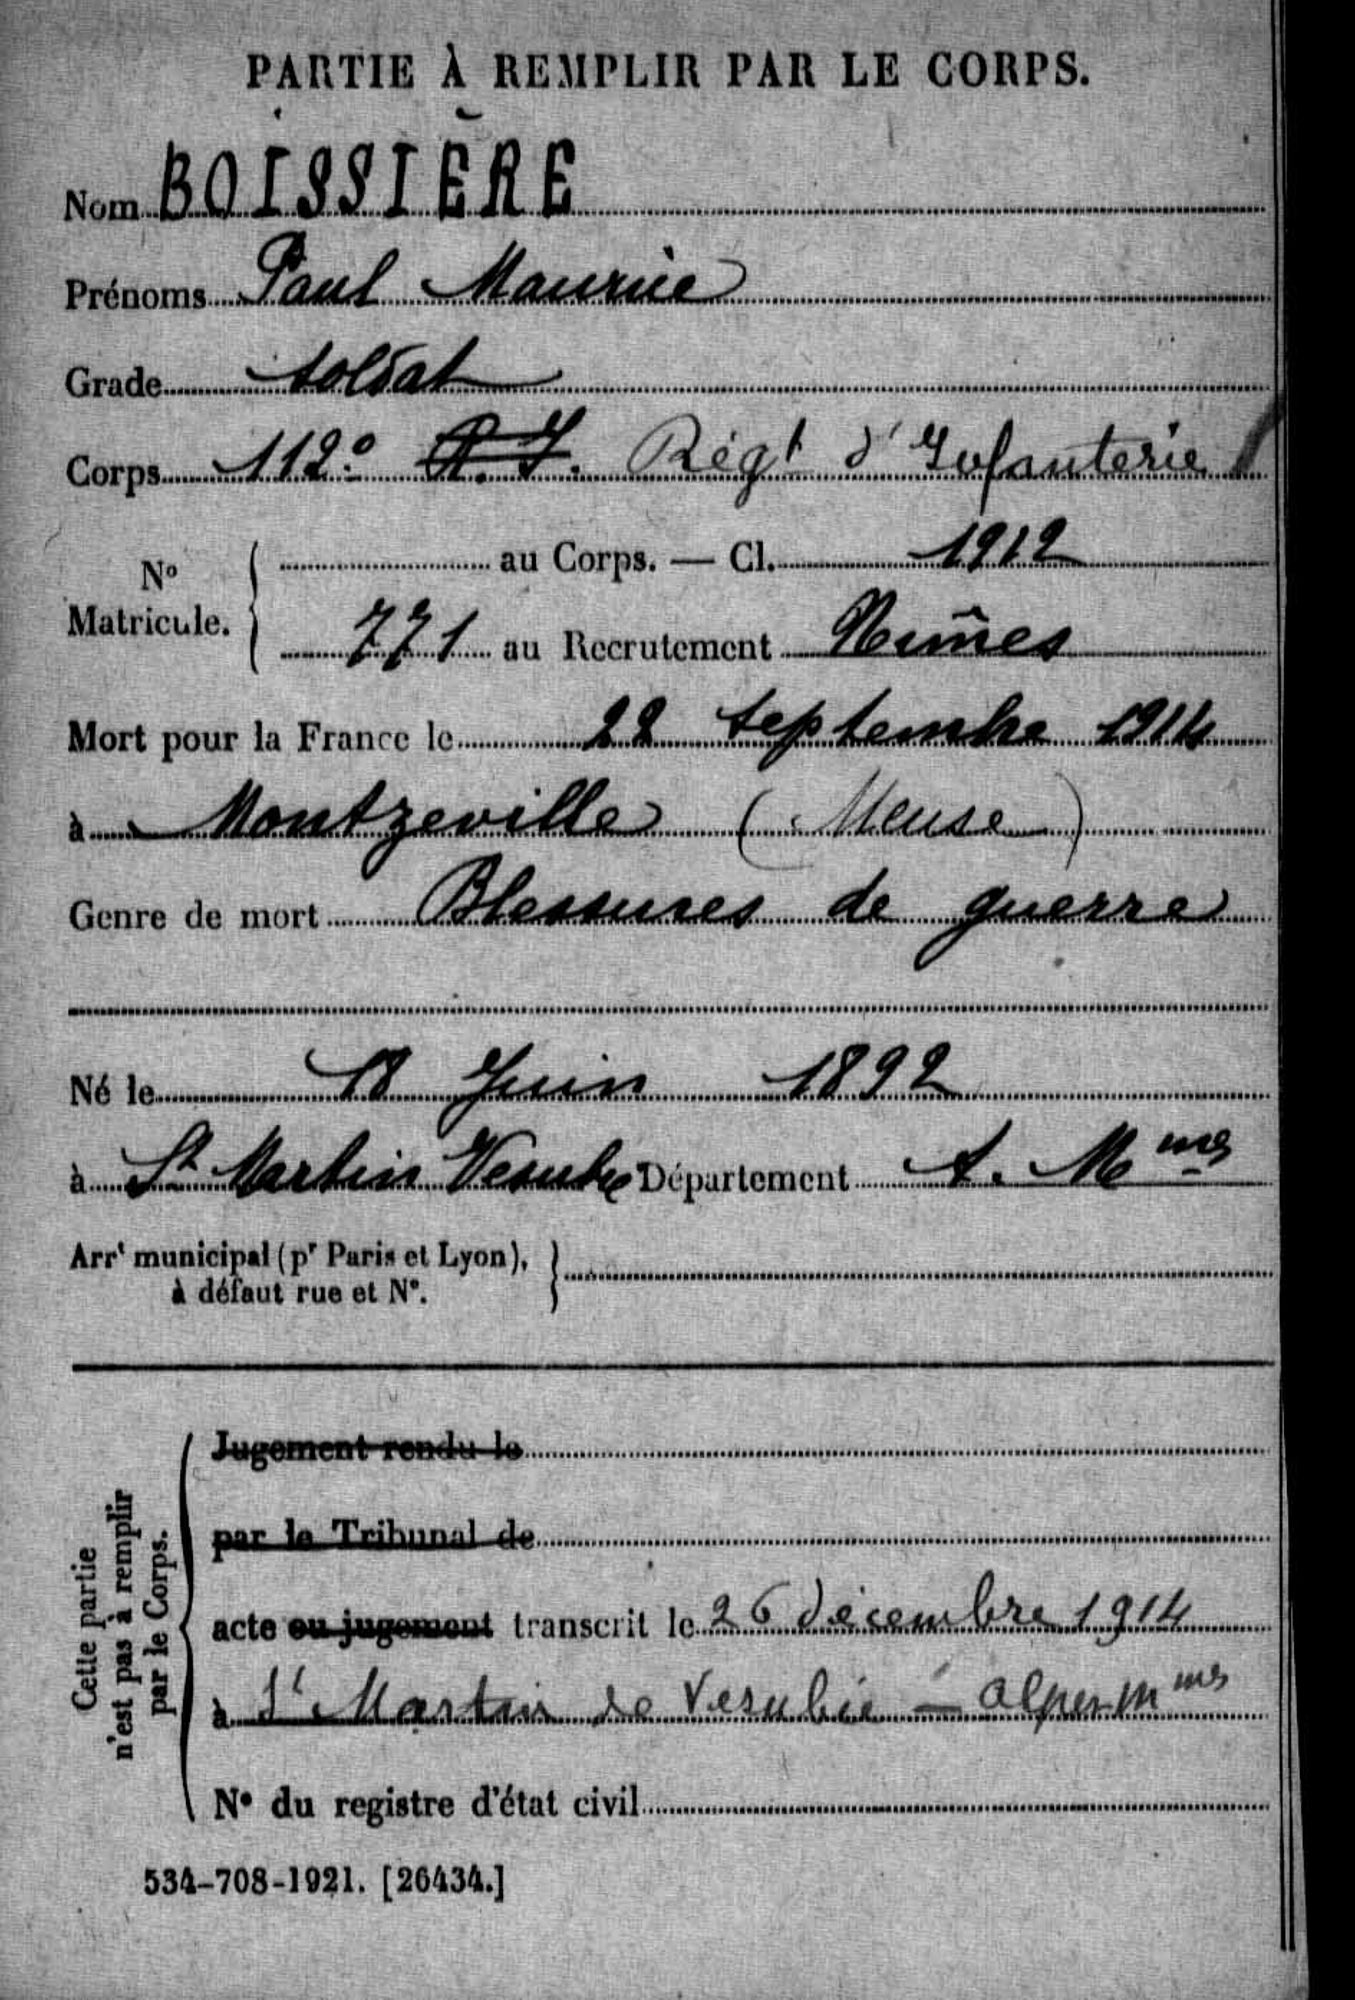 PARTIE À REMPLIR PAR LE CORPS.
Nom BOISSIÈRE
Prénoms Paul Maurice
Grade soldat
Corps 112e R. I. Régt d'Infanterie
No Matricule. { au Corps. — Cl. 1912
771 au Recrutement Nîmes
Mort pour la France le 22 septembre 1914
à Montzeville (Meuse)
Genre de mort Blessures de guerre
Né le 18 Juin 1892
à St Martin Vesubie Département A. Mmes
Arrt municipal (pr Paris et Lyon), }
à défaut rue et N°.
Cette partie
n'est pas à remplir
par le Corps.
Jugement rendu le
par le Tribunal de
acte ou jugement transcrit le 26 décembre 1914
à St Martin de Vesubie — Alpes Mmes
N° du registre d'état civil
534-708-1921. [26434.]